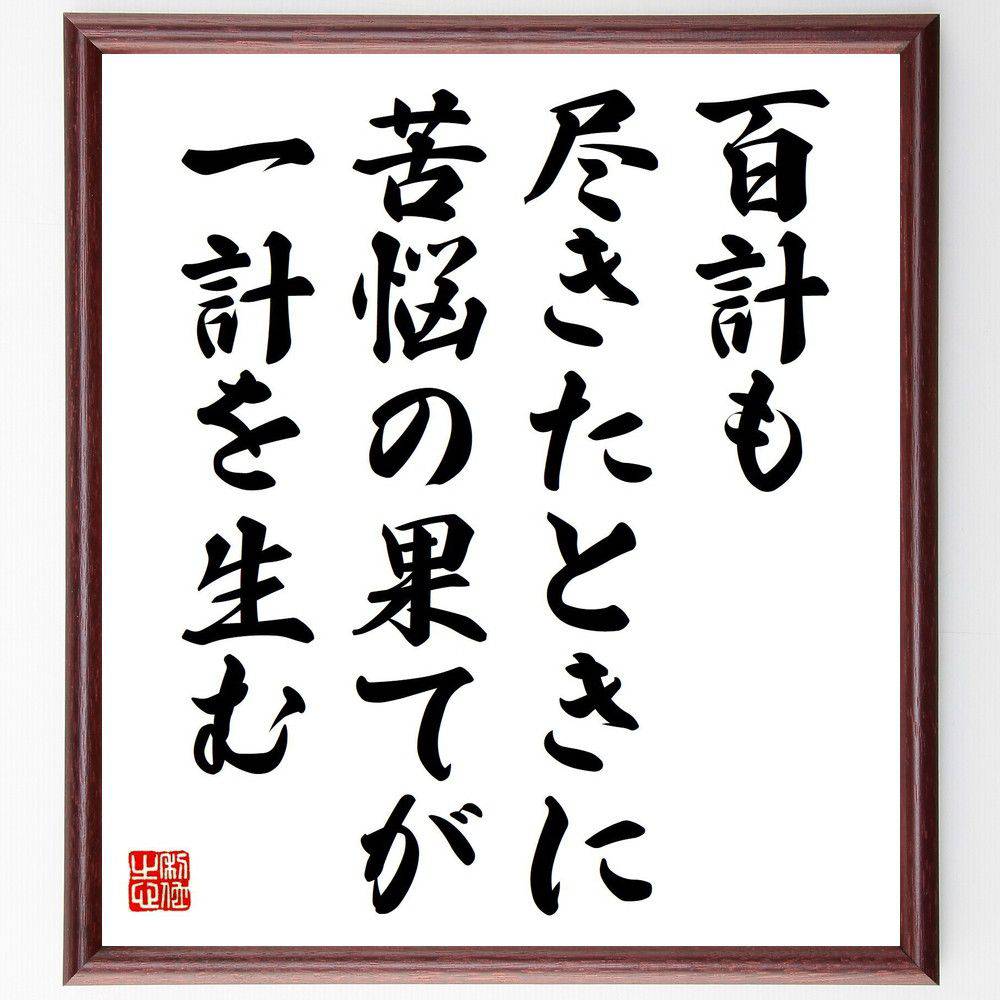 百計も
尽きたときに
苦悩の果てが
一計を生む